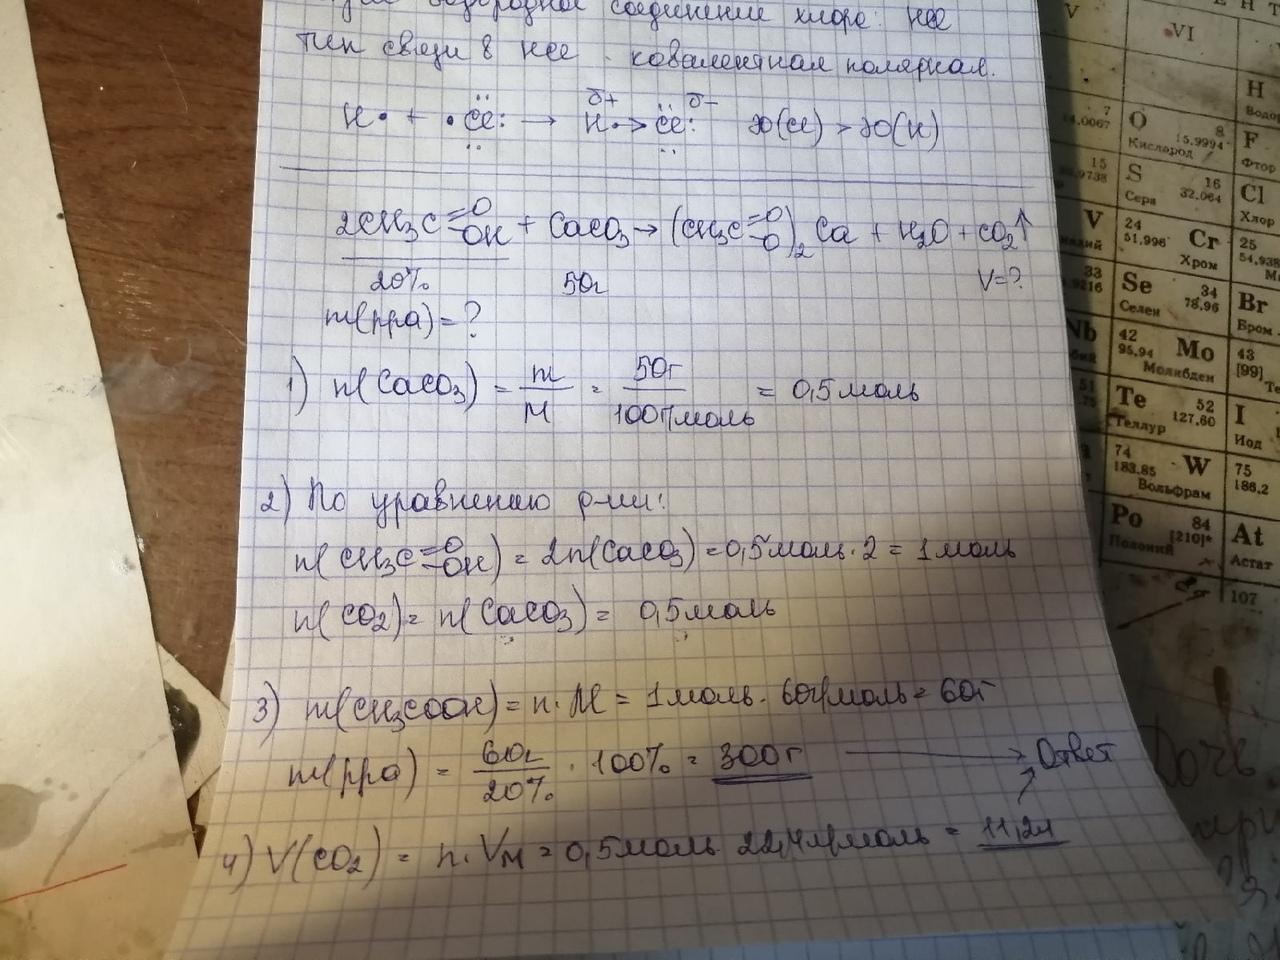 водородное соединение хлора: HCl
тип связи в HCl - ковалентная полярная.
H• + •Cl: → H•>Cl: ЭО(Cl) > ЭО(H)
δ+ δ-
2CH3C=O-OH + CaCO3 → (CH3C=O-O)2Ca + H2O + CO2↑
20% 50г V=?
m(рра) = ?
1) n(CaCO3) = m/M = 50г/100г/моль = 0,5 моль
2) По уравнению р-ии:
n(CH3C=O-OH) = 2n(CaCO3) = 0,5 моль · 2 = 1 моль
n(CO2) = n(CaCO3) = 0,5 моль
3) m(CH3COOH) = n · M = 1 моль · 60г/моль = 60г
m(рра) = 60г/20% · 100% = 300г → Ответ
4) V(CO2) = n · VM = 0,5 моль 22,4л/моль = 11,2л
V
VI
Н
7
14.0067
O 8
15.9994
Кислород
F
Фтор
15
S 16
32.064
Сера
Cl
Хлор
V
24
51.996 Cr
Хром
25
54.938
33
Se 34
78.96
Селен
Br
Бром
Nb
42
95.94 Mo
Молибден
43
[99]
51
Te 52
127.60
Теллур
I
Иод
74
183.85 W
Вольфрам
75
186.2
Po 84
[210]*
Полоний
At
Астат
107